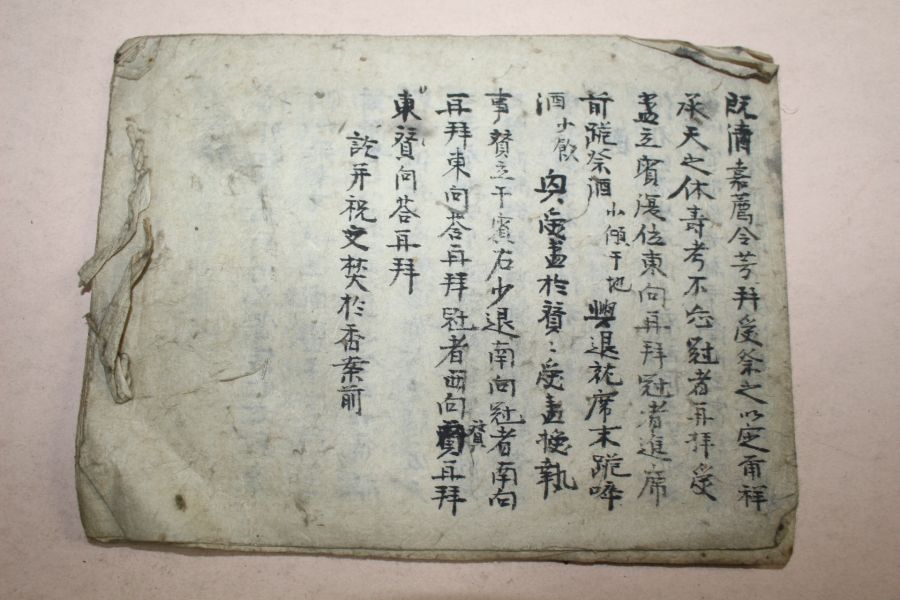 既淸嘉薦令芳拜受祭之以定爾祥
承天之休壽考不忘冠者再拜受
盞立賓復位東向再拜冠者進席
前跪祭酒小傾于地興退就席末跪啐
酒小飮興受盞於賛〻受盞授執
事賛立于賓右少退南向冠者南向
再拜東向答再拜冠者西向賛再拜
東賛向答再拜
訖并祝文焚於香案前